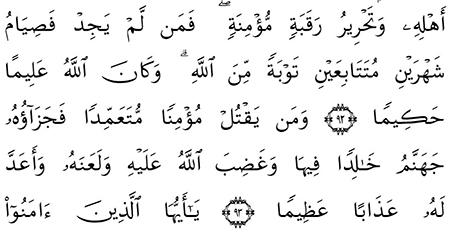 أَهْلِهِۦ وَتَحْرِيرُ رَقَبَةٍ مُّؤْمِنَةٍ ۖ فَمَن لَّمْ يَجِدْ فَصِيَامُ
شَهْرَيْنِ مُتَتَابِعَيْنِ تَوْبَةً مِّنَ ٱللَّهِ ۗ وَكَانَ ٱللَّهُ عَلِيمًا
حَكِيمًا ﴿٩٢﴾ وَمَن يَقْتُلْ مُؤْمِنًا مُّتَعَمِّدًا فَجَزَآؤُهُۥ
جَهَنَّمُ خَـٰلِدًا فِيهَا وَغَضِبَ ٱللَّهُ عَلَيْهِ وَلَعَنَهُۥ وَأَعَدَّ
لَهُۥ عَذَابًا عَظِيمًا ﴿٩٣﴾ يَـٰٓأَيُّهَا ٱلَّذِينَ ءَامَنُوٓا۟